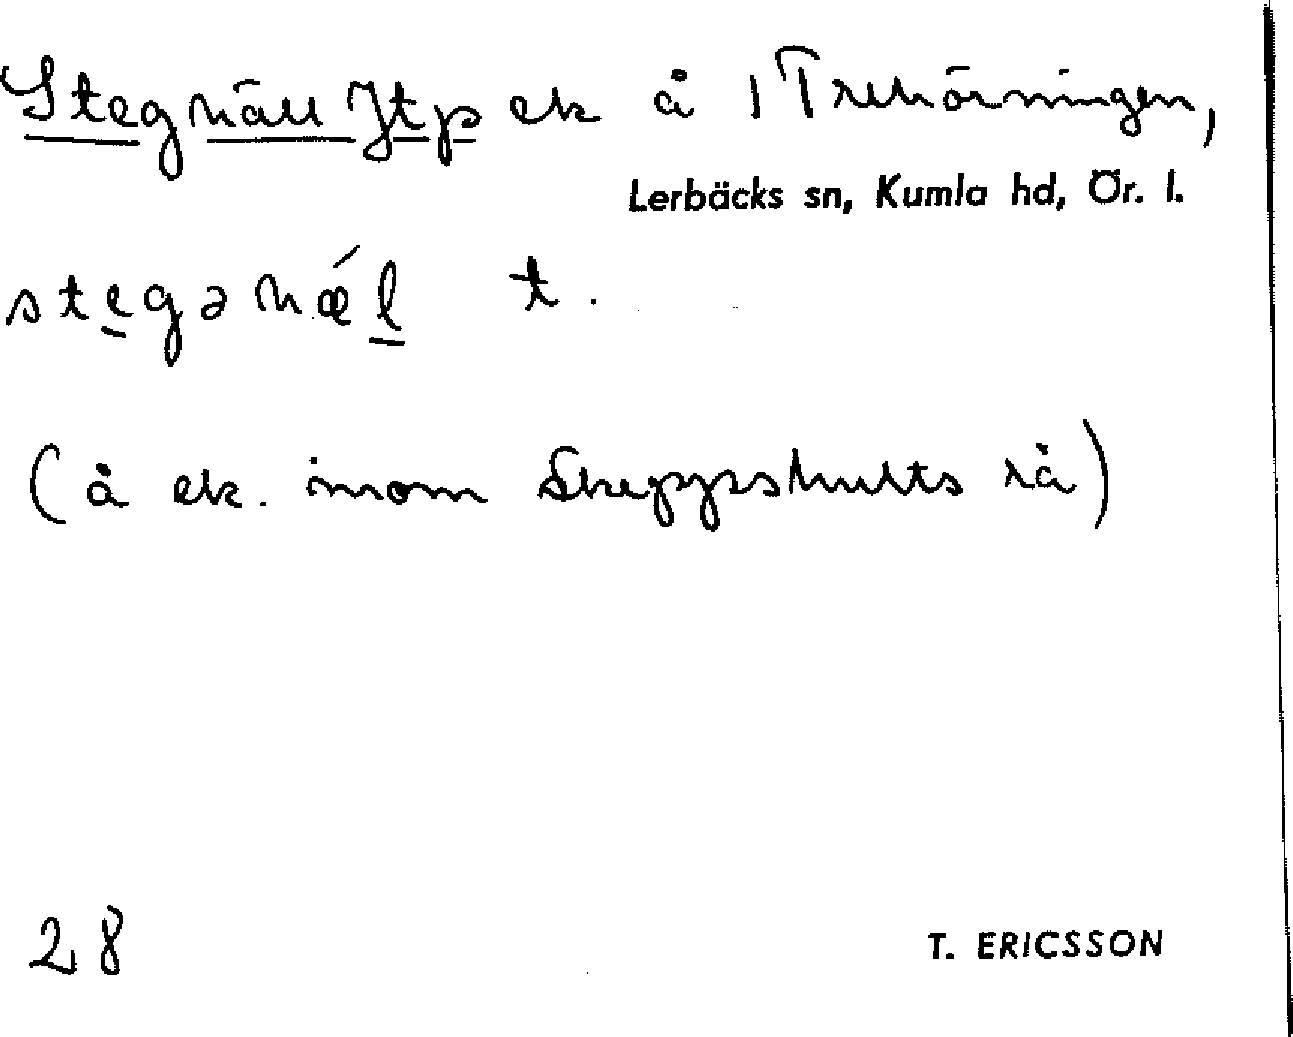 Steghäll Jtp ek å 1 Trehörningen,
Lerbäcks sn, Kumla hd, Ör. l.
stegəhǽl t.
(å ek. inom Skeppshults rå)
28
T. ERICSSON